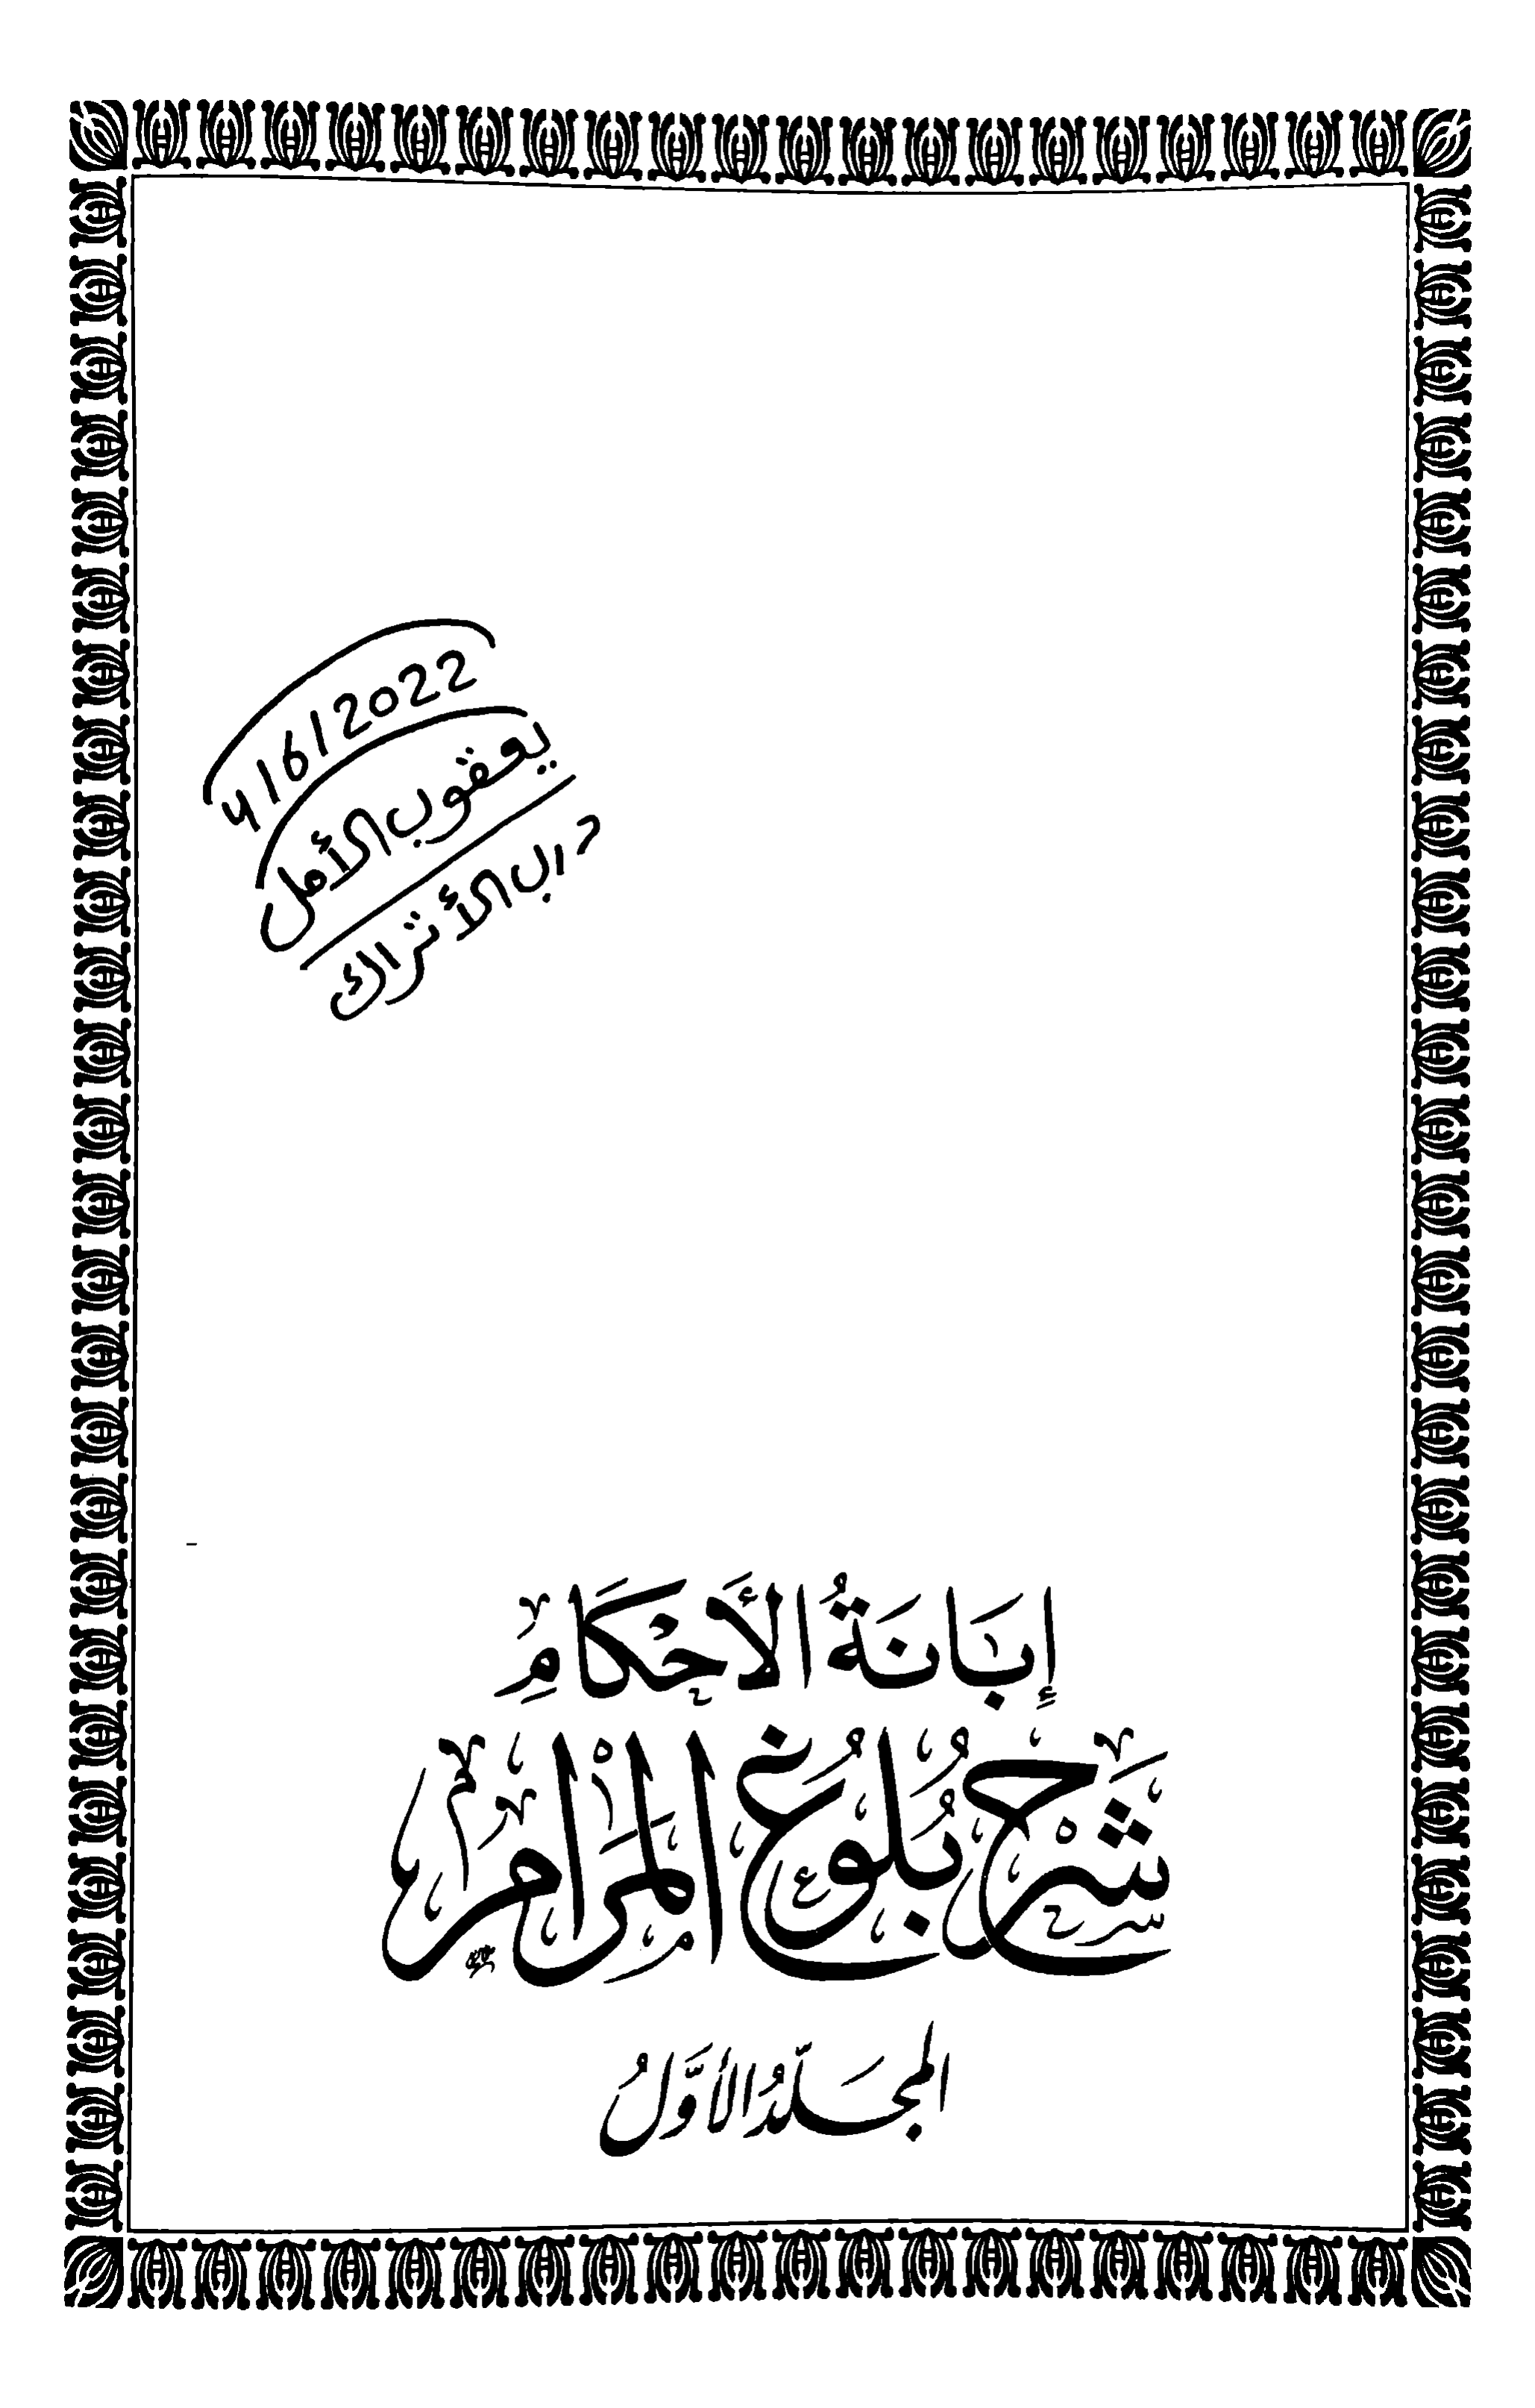 4/6/2022
يعقوب الأمل
درب الأتراك
إِبَانَةُ الأَحْكَامِ
شَرْحُ بُلُوُغِ المَرَامِ
المجَلّدُ الأوَّلُ